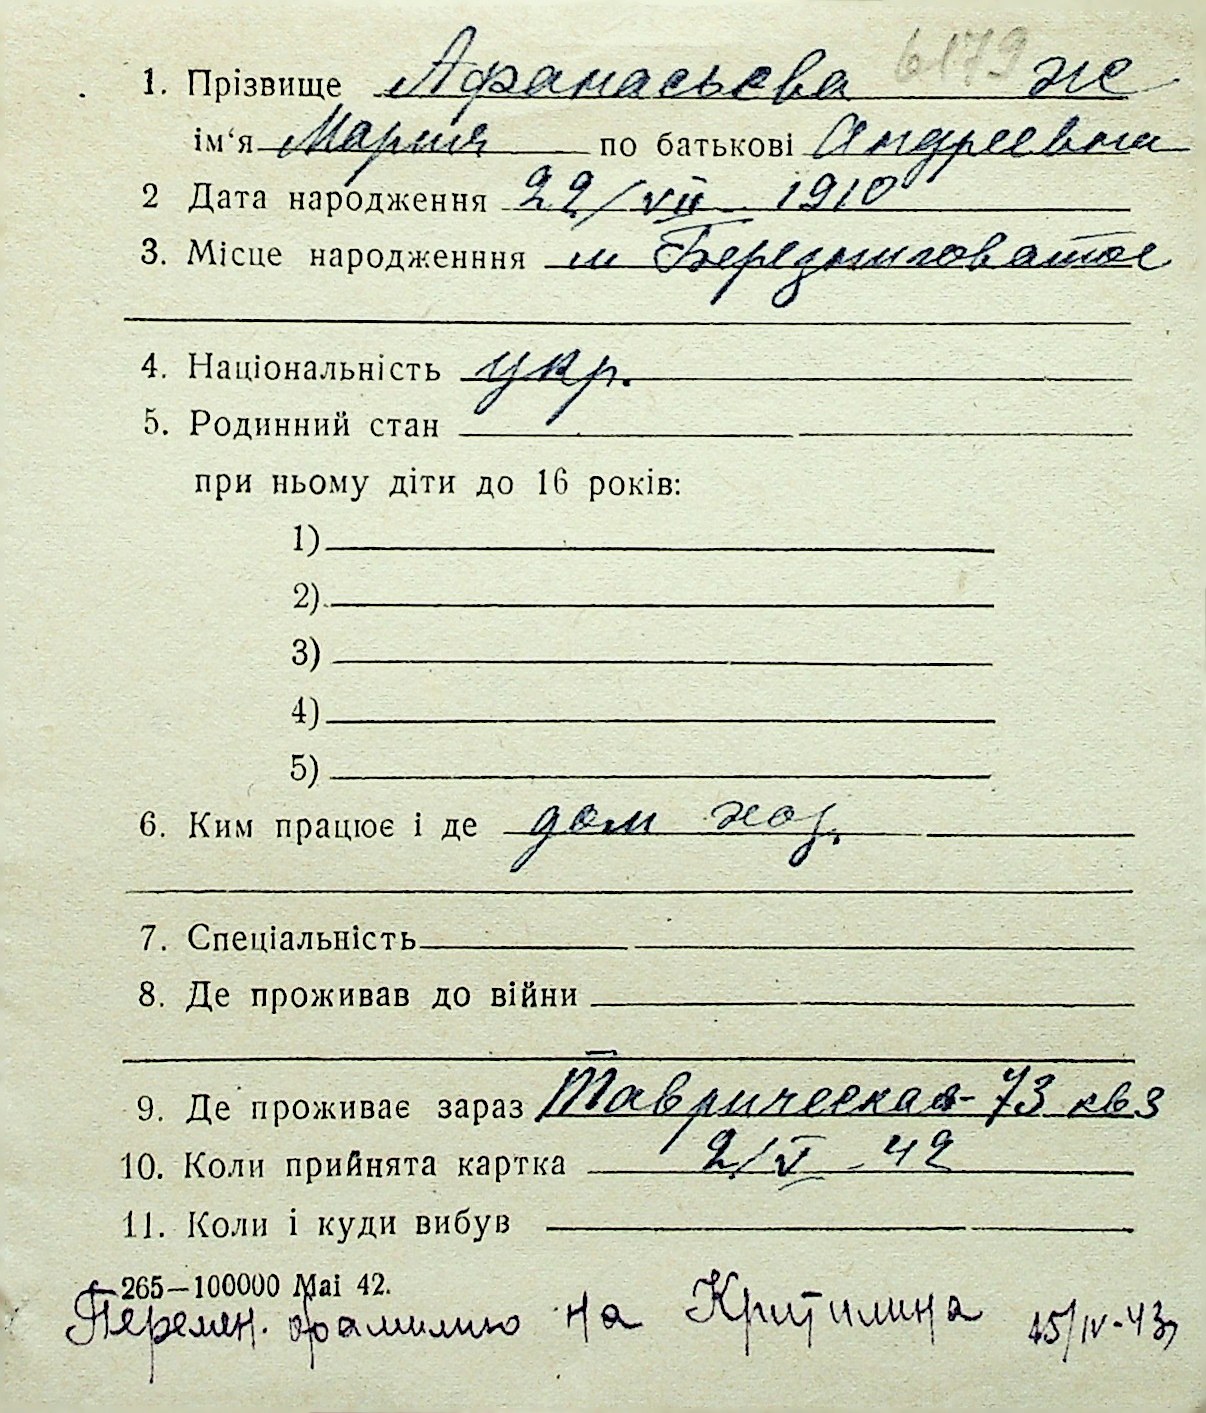 6179
1. Прізвище Афанасьева ж
ім‘я Мария по батькові Андреевна
2 Дата народження 22/VII 1910
3. Місце народженння м Березниговатое
4. Національність укр.
5. Родинний стан
при ньому діти до 16 років:
1)
2)
3)
4)
5)
6. Ким працює і де дом хоз.
7. Спеціальність
8. Де проживав до війни
9. Де проживає зараз Таврическая-73 кв 3
10. Коли прийнята картка 2/V-42
11. Коли і куди вибув
265—100000 Mai 42.
Перемен. фамилию на Критилина 15/IV-43